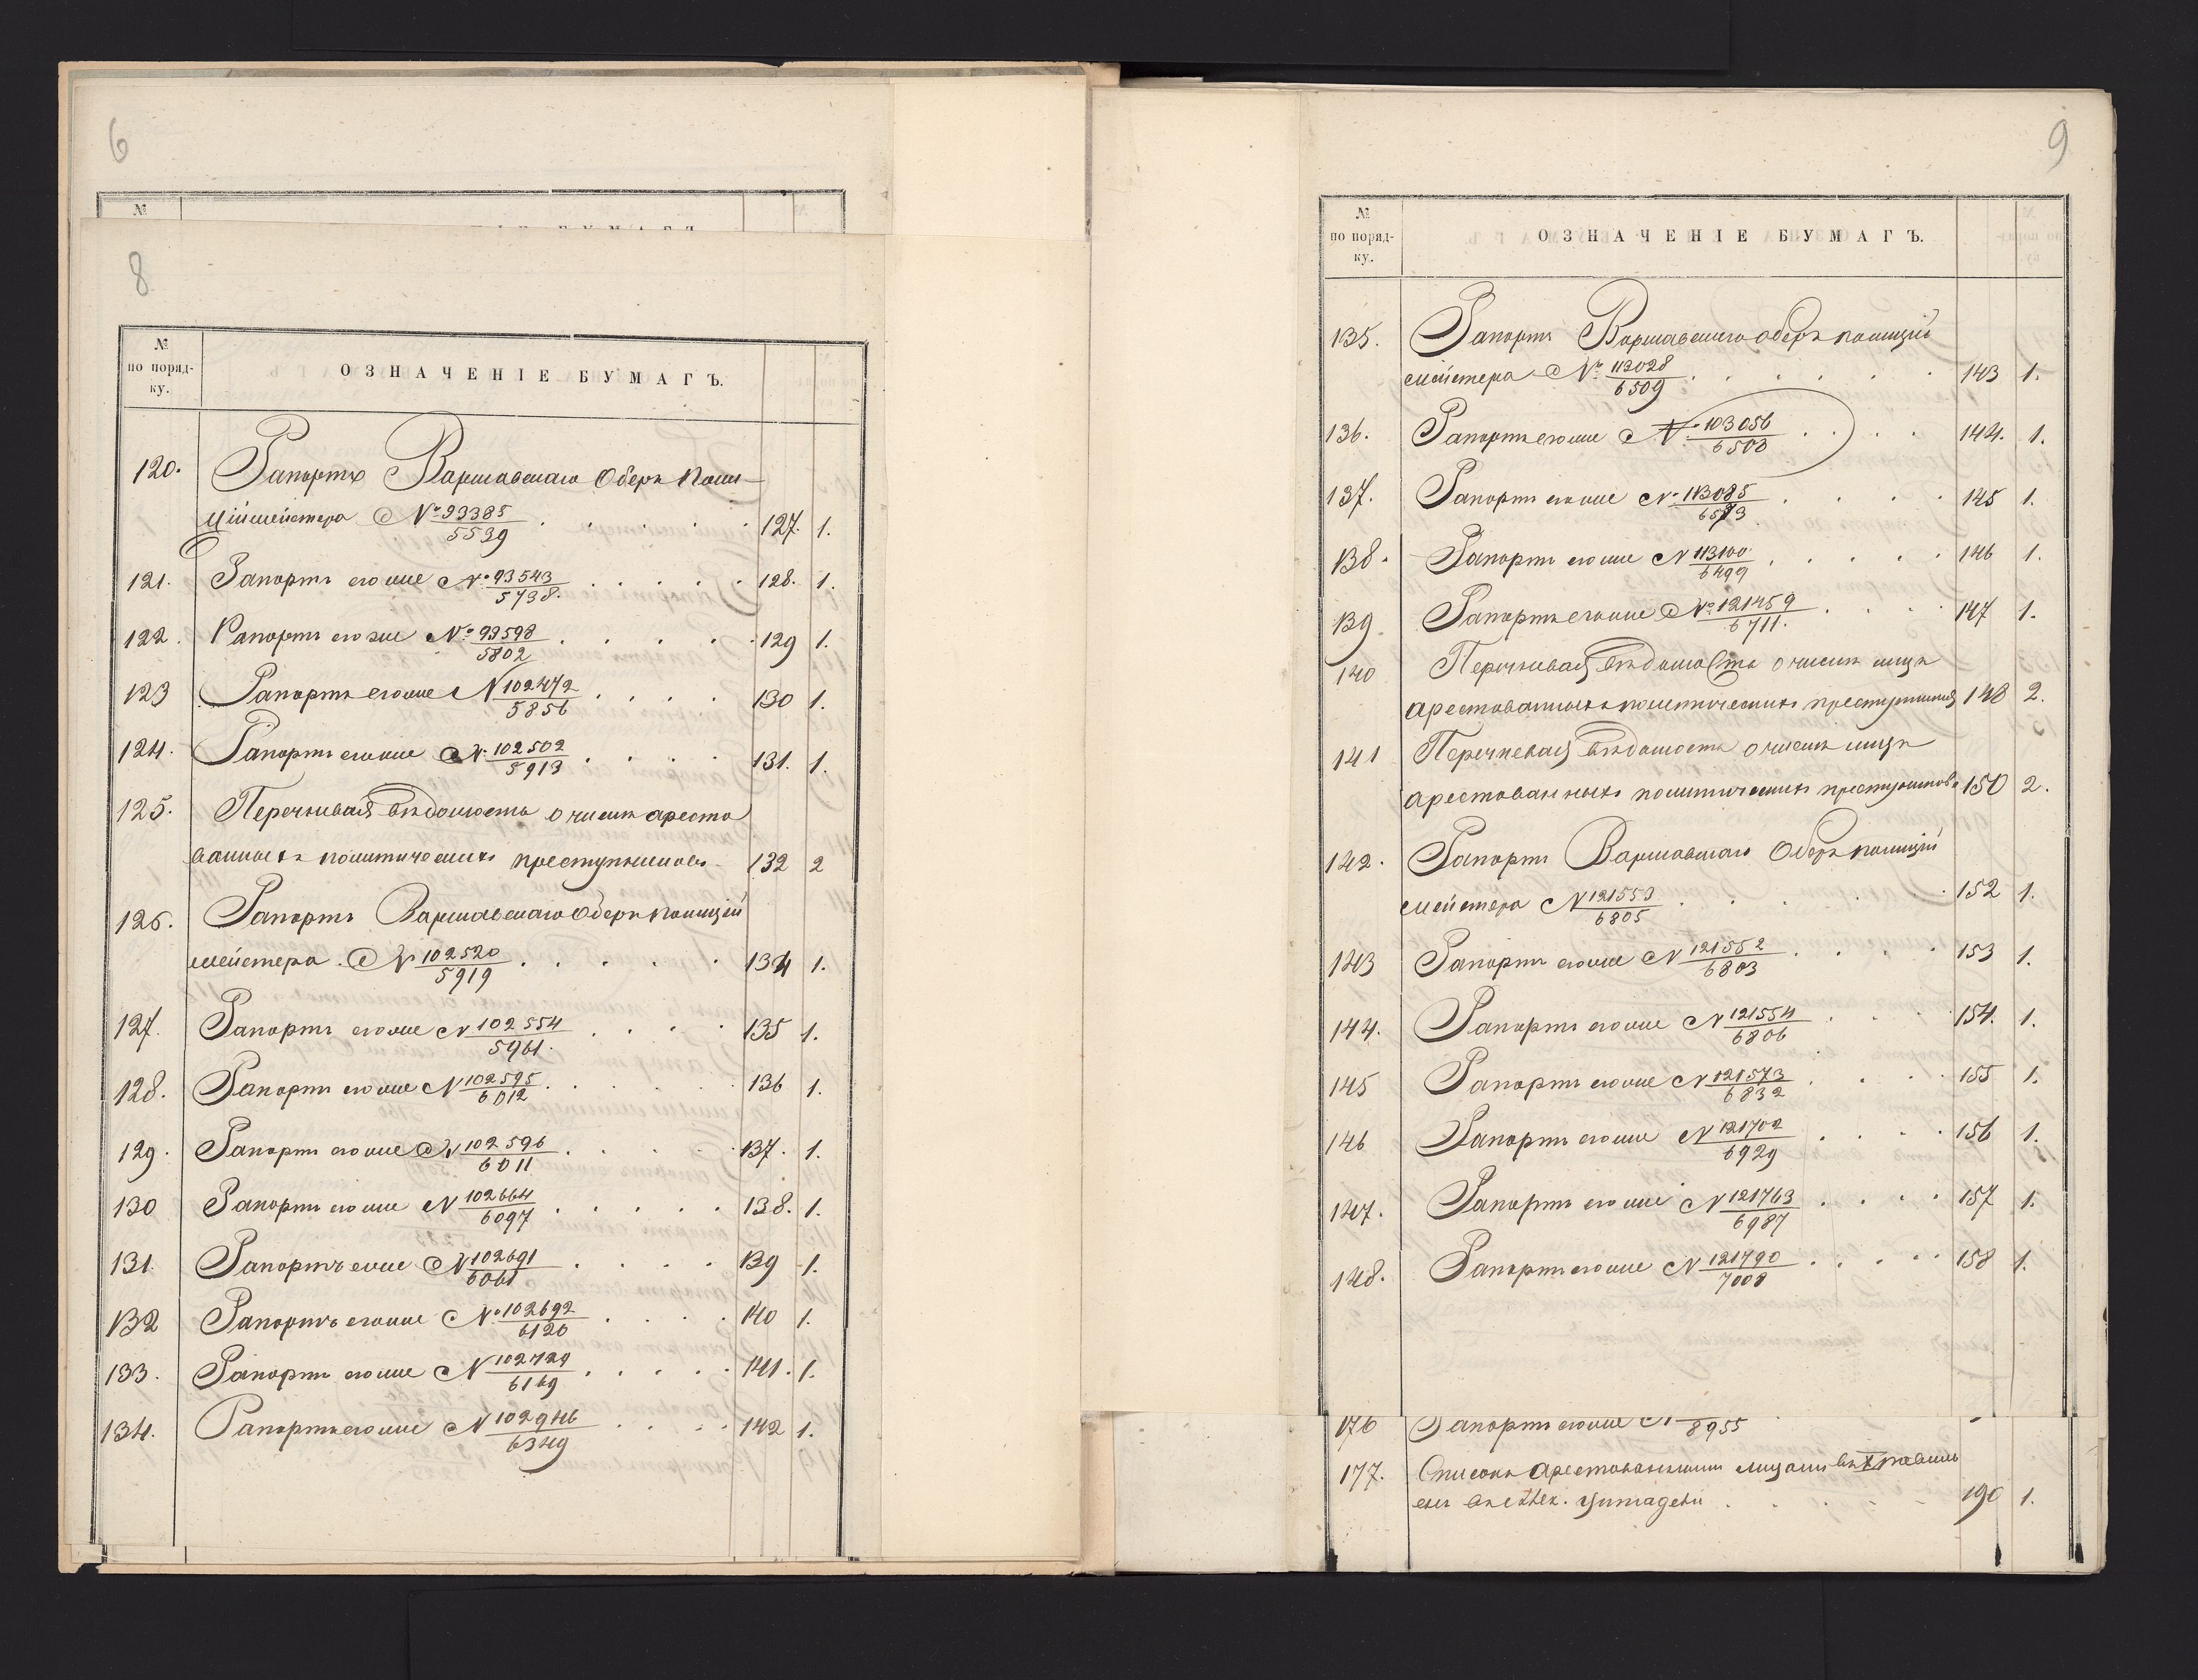 6
№
8
№
по поряд-
ку.
ОЗНАЧЕНІЕ БУМАГЪ.
120. Рапортъ Варшавскаго Оберъ Поли-
ціймейстера № 93385/5539 . . . . . 127. 1.
121. Рапортъ его же № 93543/5738. . . . . . 128. 1.
122. Рапортъ его же № 93598/5802 . . . . . 129 1.
123 Рапортъ его же № 102472/5856 . . . . 130 1.
124. Рапортъ его же № 102502/5913 . . . . 131. 1.
125. Перечневая вѣдомость о числѣ аресто
ванныхъ политическихъ преступниковъ 132 2
126. Рапортъ Варшавскаго Оберъ полицій
мейстера. № 102520/5919 . . . . . 134 1.
127. Рапортъ его же № 102554/5961. . . . . 135 1.
128. Рапортъ его же № 102595/6012 . . . . . 136 1.
129. Рапортъ его же № 102596/6011 . . . . . 137. 1.
130 Рапортъ его же № 102664/6097 . . . . . 138. 1.
131. Рапортъ его же № 102691/6061 . . . . 139 1.
132 Рапортъ его же № 102692/6120 . . . . 140 1.
133. Рапортъ его же № 102729/6169 . . . . . 141. 1.
134. Рапортъ его же № 102946/6349 . . . . 142 1.
9
№
по поряд-
ку.
ОЗНАЧЕНІЕ БУМАГЪ.
135. Рапортъ Варшавскаго Оберъ полицій
мейстера № 113028/6509 . . . . . . 143 1.
136. Рапортъ его же № 103056/6503 . . . . 144. 1.
137. Рапортъ его же № 113085/6573 . . . . 145 1.
138. Рапортъ его же № 113100/6499 . . . . . 146 1.
139. Рапортъ его же № 121459/6711. . . . . 147 1.
140 Перечневая вѣдомость о числѣ лицъ
арестованныхъ политическихъ преступниковъ 148 2.
141 Перечневая вѣдомость о числѣ лицъ
арестованныхъ политическихъ преступниковъ 150 2.
142. Рапортъ Варшавскаго Оберъ полицій
мейстера № 121553/6805 . . . . . 152 1.
143 Рапортъ его же № 121552/6803 . . . . 153 1.
144. Рапортъ его же № 121554/6806 . . . . 154. 1.
145 Рапортъ его же № 121573/6832 . . . . 155 1.
146 Рапортъ его же № 121702/6929 . . . . 156 1.
147. Рапортъ его же № 121763/6987 . . . . 157 1.
148. Рапортъ его же № 121790/7008 . . . . 158 1.
176 Рапортъ его же № 8955
177. Списокъ арестованнымъ лицамъ
190 1.